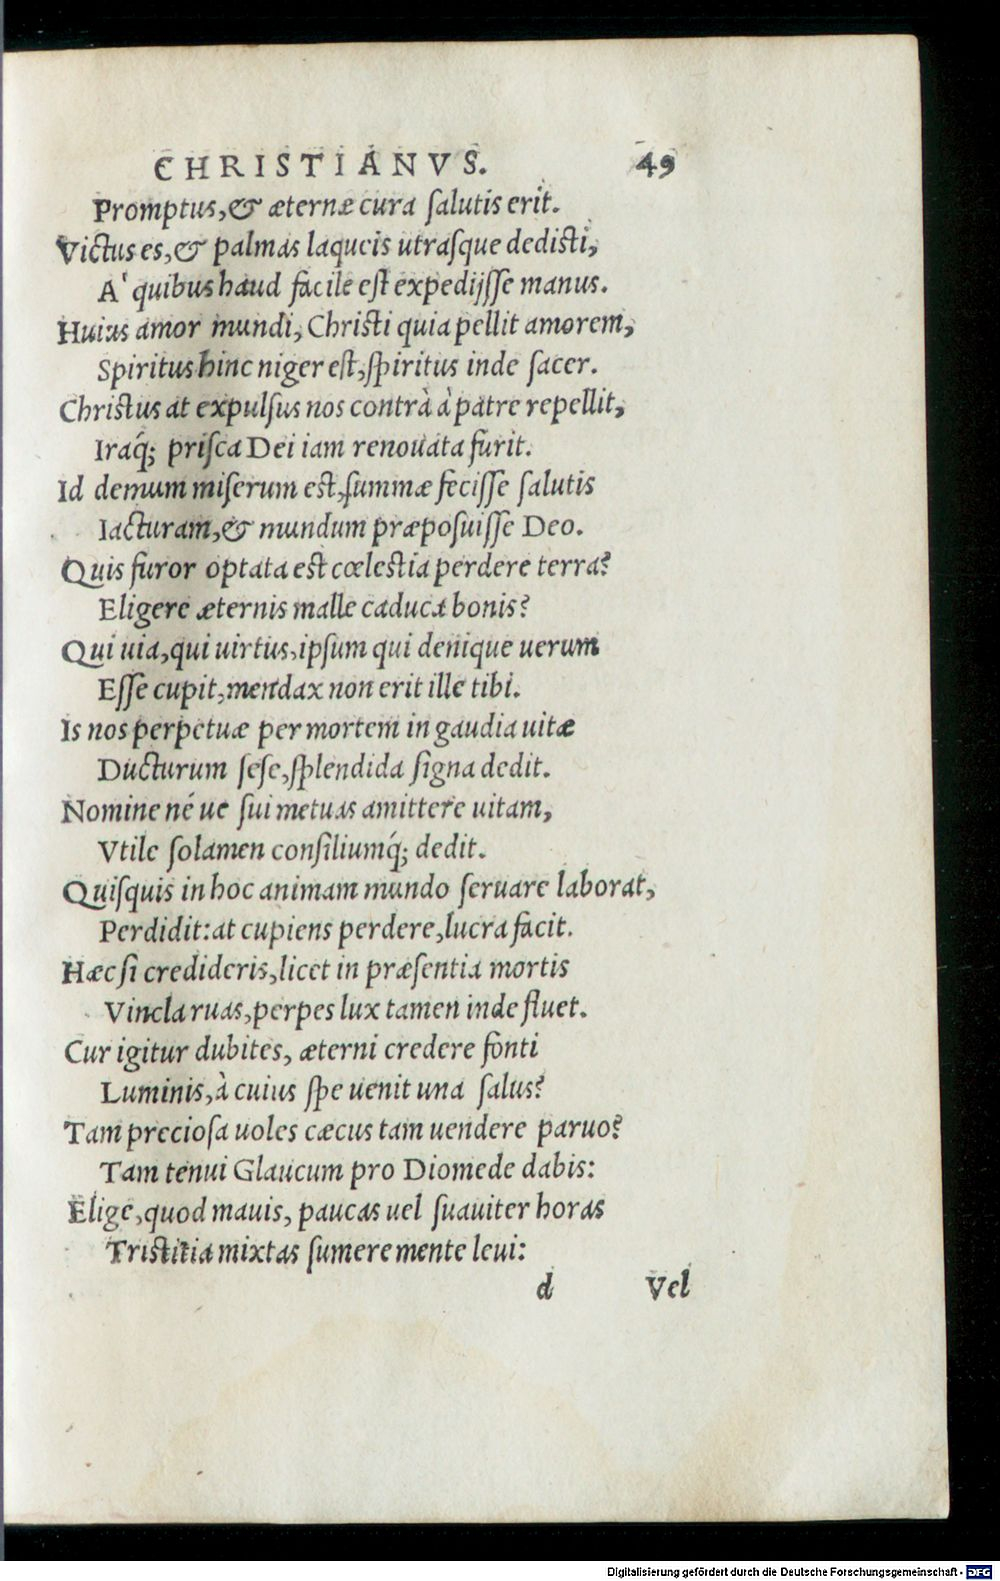 CHRISTIANVS. 49
Promptus, & æternæ cura ſalutis erit.
Victus es, & palmas laqueis utraſque dedisti,
A' quibus haud facile est expedijſſe manus.
Huius amor mundi, Christi quia pellit amorem,
Spiritus hinc niger est, ſpiritus inde ſacer.
Christus at expulſus nos contrà à patre repellit,
Iraq́; priſca Dei iam renouata furit.
Id demum miſerum est, ſummæ feciſſe ſalutis
Iacturam, & mundum præpoſuiſſe Deo.
Quis furor optata est cœlestia perdere terra?
Eligere æternis malle caduca bonis?
Qui uia, qui uirtus, ipſum qui denique uerum
Eſſe cupit, mendax non erit ille tibi.
Is nos perpetuæ per mortem in gaudia uitæ
Ducturum ſeſe, ſplendida ſigna dedit.
Nomine né ue ſui metuas amittere uitam,
Vtile ſolamen conſiliumq́; dedit.
Quiſquis in hoc animam mundo ſeruare laborat,
Perdidit: at cupiens perdere, lucra facit.
Hæc ſi credideris, licet in præſentia mortis
Vincla ruas, perpes lux tamen inde fluet.
Cur igitur dubites, æterni credere fonti
Luminis, à cuius ſpe uenit una ſalus?
Tam precioſa uoles cæcus tam uendere paruo?
Tam tenui Glaucum pro Diomede dabis:
Elige, quod mauis, paucas uel ſuauiter horas
Tristitia mixtas ſumere mente leui:
d Vel
Digitalisierung gefördert durch die Deutsche Forschungsgemeinschaft - DFG